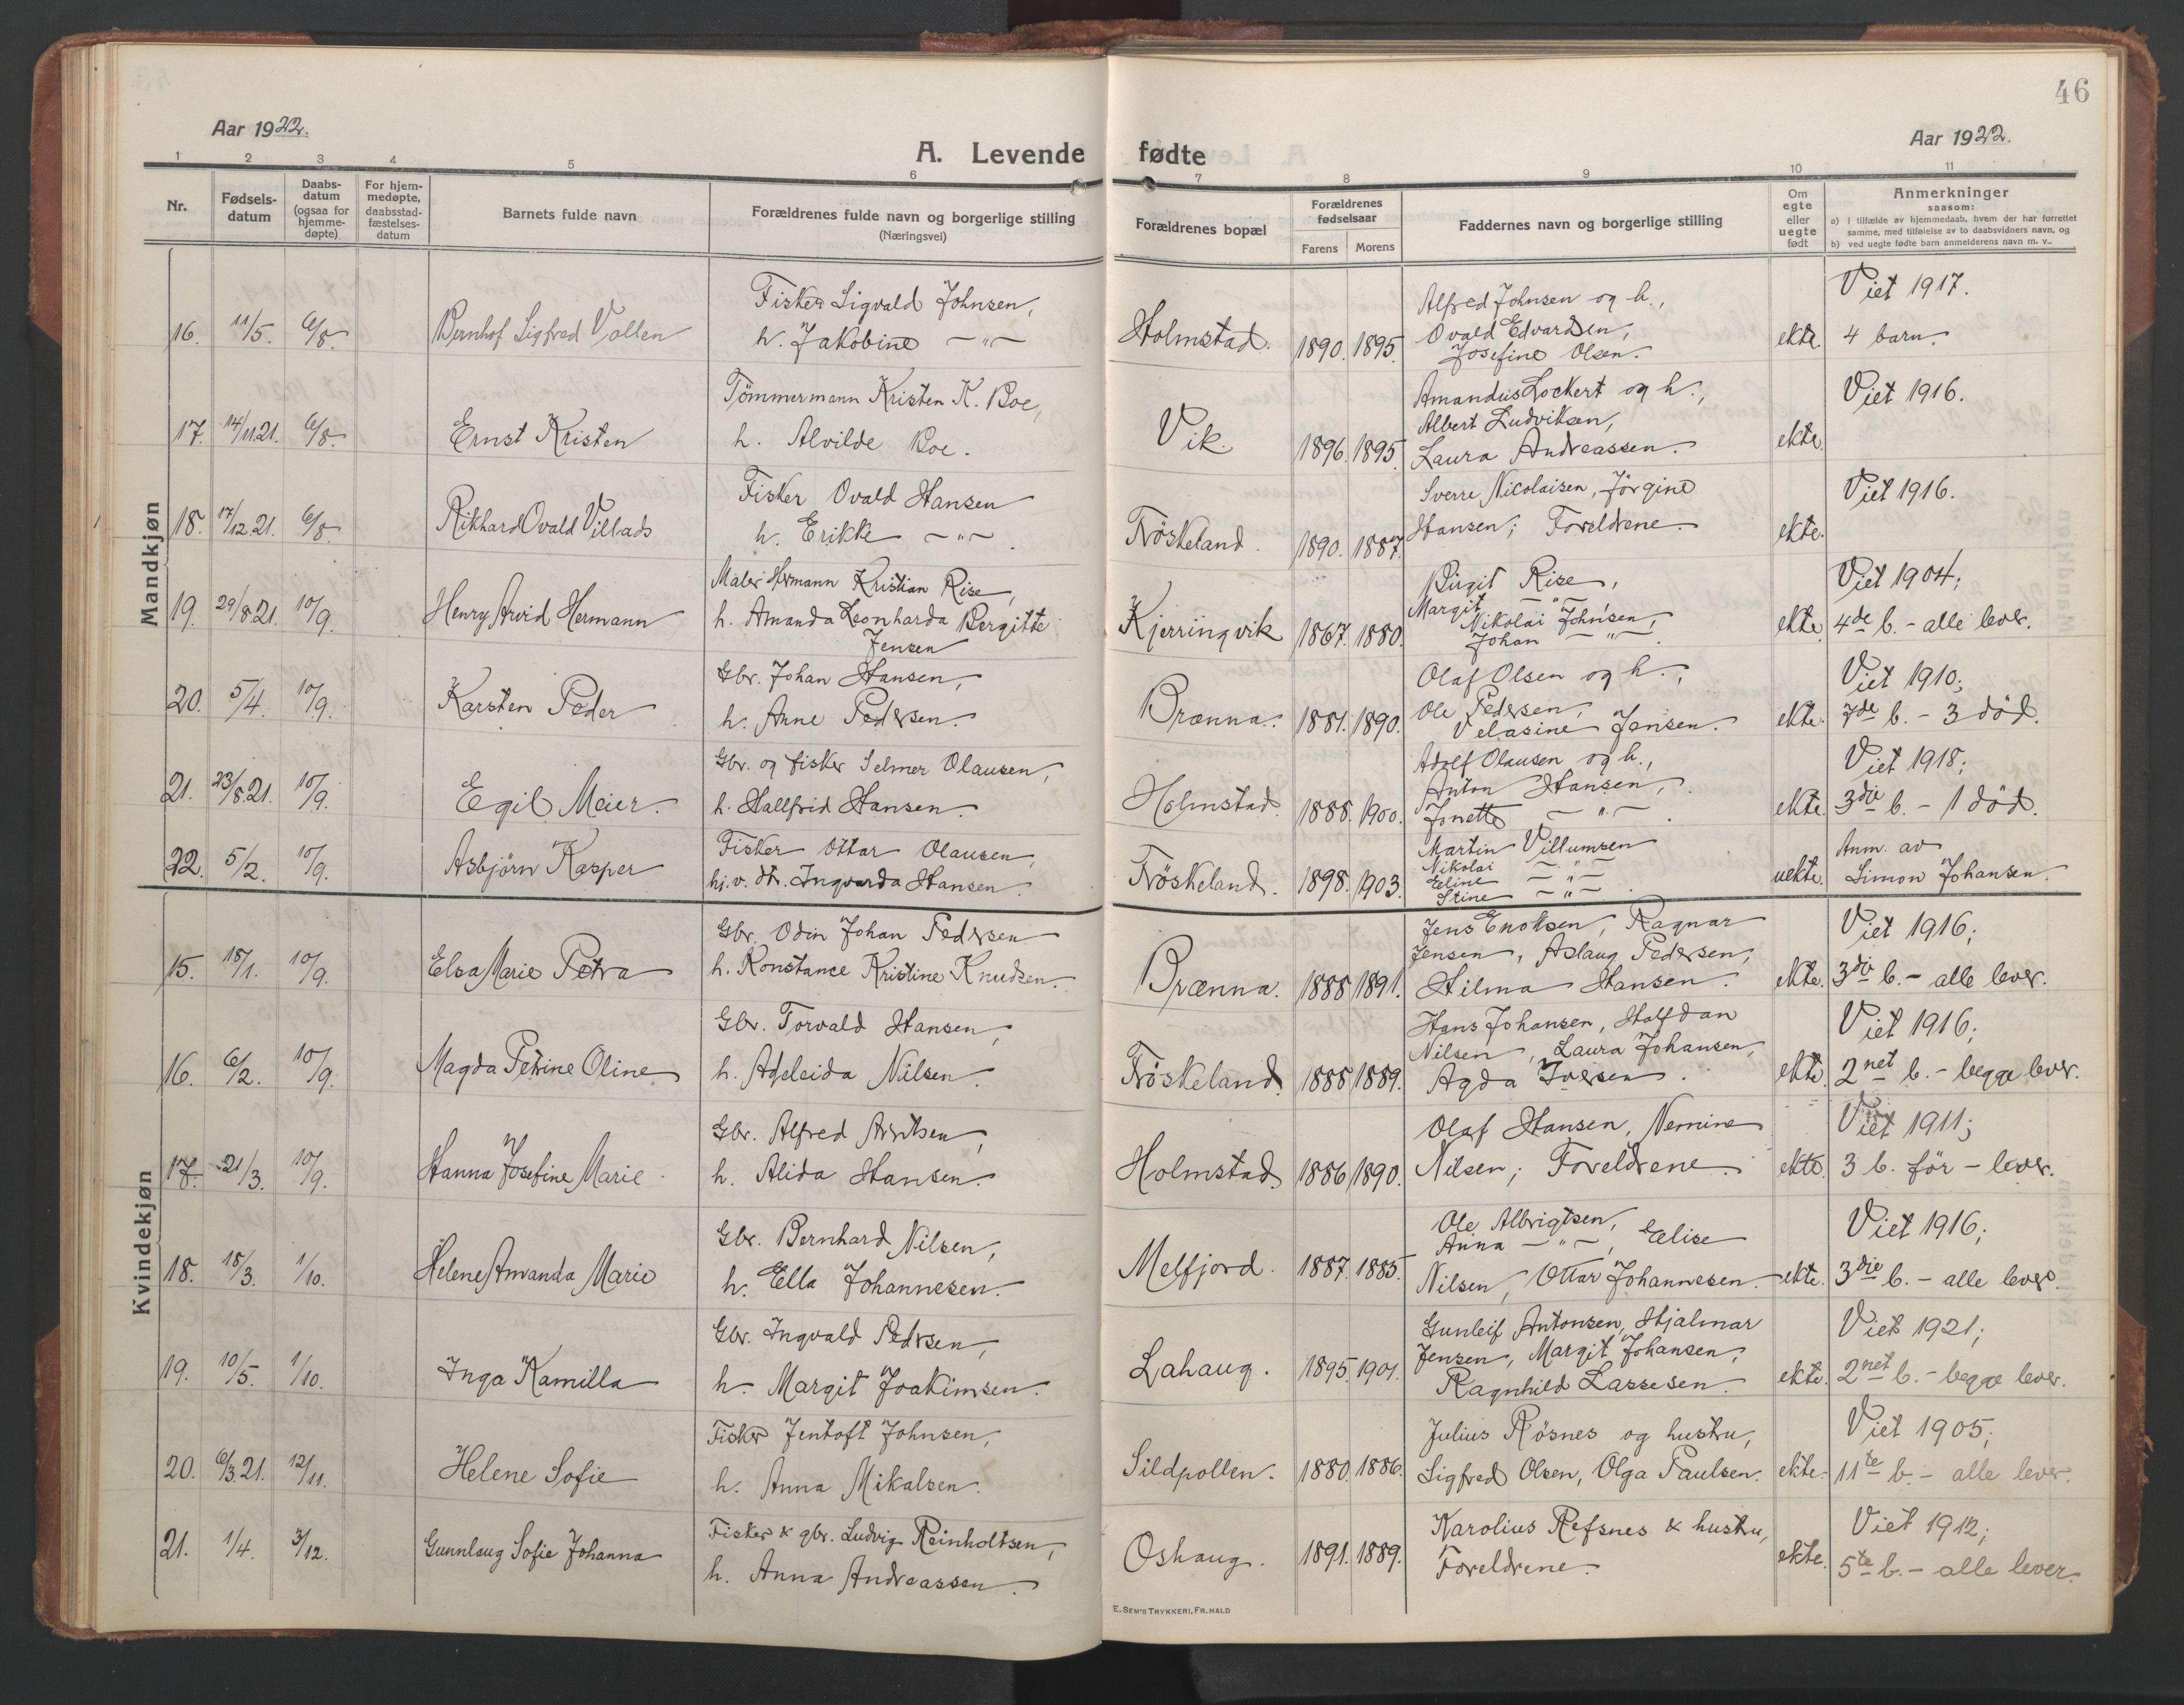 46
Aar 1922.
Aar 1922.
A. Levende fødte
1 2 3 4 5 6 7 8 9 10 11
Nr.
Fødsels-
datum
Daabs-
datum
(ogsaa for
hjemme-
døpte)
For hjem-
medøpte,
daabsstad-
fæstelses-
datum
Barnets fulde navn
Forældrenes fulde navn og borgerlige stilling
(Næringsvei)
Forældrenes bopæl
Forældrenes
fødselsaar
Farens Morens
Faddernes navn og borgerlige stilling
Om
egte
eller
uegte
født
Anmerkninger
saasom:
a) i tilfælde av hjemmedaab, hvem der har forrettet
samme, med tilføielse av to daabsvidners navn, og
b) ved uegte fødte barn anmelderens navn m. v..
Mandkjøn
16. 11/5. 6/8. Bernhof Sigfred Vollen
Fisker Sigvald Johnsen,
h. Jakobine — " —
Holmstad. 1890. 1895.
Alfred Johnsen og h.,
Ovald Edvardsen,
Josefine Olsen.
ekte.
Viet 1917.
4 barn.
17. 14/11.21. 6/8. Ernst Kristen
Tömmermann Kristen K. Boe,
h. Alvilde Boe.
Vik. 1896. 1895.
Amandus Lockert og h.,
Albert Ludviksen,
Laura Andreassen.
ekte.
Viet 1916.
18. 17/12.21. 6/8. Rikhard Ovald Villads
Fisker Ovald Hansen
h. Erikke — " —.
Fröskeland. 1890. 1887.
Sverre Nicolaisen, Jörgine
Hansen; Foreldrene.
ekte.
Viet 1916.
19. 29/8.21. 10/9. Henry Arvid Hermann
Maler Hermann Kristian Rise,
h. Amanda Leonharda Bergitte
Jensen
Kjerringvik 1867. 1880.
Birgit Rise,
Margit — " —
Nikolai Johnsen,
Johan — " —.
ekte.
Viet 1904;
4de b. - alle lever.
20. 5/4. 10/9. Karsten Peder
Gbr. Johan Hansen,
h. Anne Pedersen.
Brænna. 1881. 1890.
Olaf Olsen og h.,
Ole Pedersen,
Velasine Jensen.
ekte.
Viet 1910;
7de b. - 3 död.
21. 23/8.21. 10/9. Egil Meier.
Gbr. og fisker Selmer Olausen,
h. Hallfrid Hansen.
Holmstad. 1888. 1900.
Adolf Olausen og h.,
Anton Hansen,
Jonette — " —.
ekte.
Viet 1918;
3die b. - 1 död.
22. 5/2. 10/9. Asbjörn Kasper
Fisker Ottar Olausen,
hj.v. dtr. Ingvarda Hansen.
Fröskeland. 1898. 1903.
Martin Villumsen
Nikolai — " —
Eline — " —
Stine — " —.
uekte.
Anm. av
Simon Johansen.
Kvindekjøn
15. 18/1. 10/9. Elsa Marie Petra
Gbr. Odin Johan Pedersen
h. Konstance Kristine Knudsen.
Brænna. 1888 1891.
Jens Enoksen, Ragnar
Jensen, Aslaug Pedersen,
Hilma Hansen.
ekte.
Viet 1916;
3die b. - alle lever.
16. 6/2. 10/9. Magda Petrine Oline
Gbr. Torvald Hansen,
h. Adeleida Nilsen.
Fröskeland. 1888 1889.
Hans Johansen, Halfdan
Nilsen, Laura Johansen,
Agda Iversen.
ekte.
Viet 1916;
2net b. - begge lever.
17. 21/3. 10/9. Hanna Josefine Marie.
Gbr. Alfred Arntsen,
h. Alida Hansen.
Holmstad. 1886 1890.
Olaf Hansen, Nemine
Nilsen; Foreldrene.
ekte.
Viet 1911;
3 b. för - lever.
18. 18/3. 1/10. Helene Amanda Marie
Gbr. Bernhard Nilsen,
h. Ella Johannesen.
Melfjord. 1887. 1885.
Ole Albrigtsen,
Anna — " —, Elise
Nilsen, Ottar Johannesen.
ekte.
Viet 1916;
3die b. - alle lever.
19. 10/5. 1/10. Inga Kamilla
Gbr. Ingvald Pedersen,
h. Margit Joakimsen.
Lahaug. 1895. 1901.
Gunleif Antonsen, Hjalmar
Jensen, Margit Johansen,
Ragnhild Lassesen.
ekte.
Viet 1921;
2net b. - begge lever.
20. 6/3.21. 12/11. Helene Sofie
Fisker Jentoft Johnsen,
h. Anna Mikalsen.
Sildpollen. 1880. 1886.
Julius Rösnes og hustru,
Sigfred Olsen, Olga Paulsen.
ekte.
Viet 1905;
11te b. - alle lever.
21. 1/4. 3/12. Gunnlaug Sofie Johanna
Fisker & gbr. Ludvig Reinholtsen,
h. Anna Andreassen.
Oshaug. 1891. 1889.
Karolius Refsnes & hustru,
Foreldrene.
ekte.
Viet 1912;
5te b. - alle lever.
E. SEM'S TRYKKERI, FR.HALD